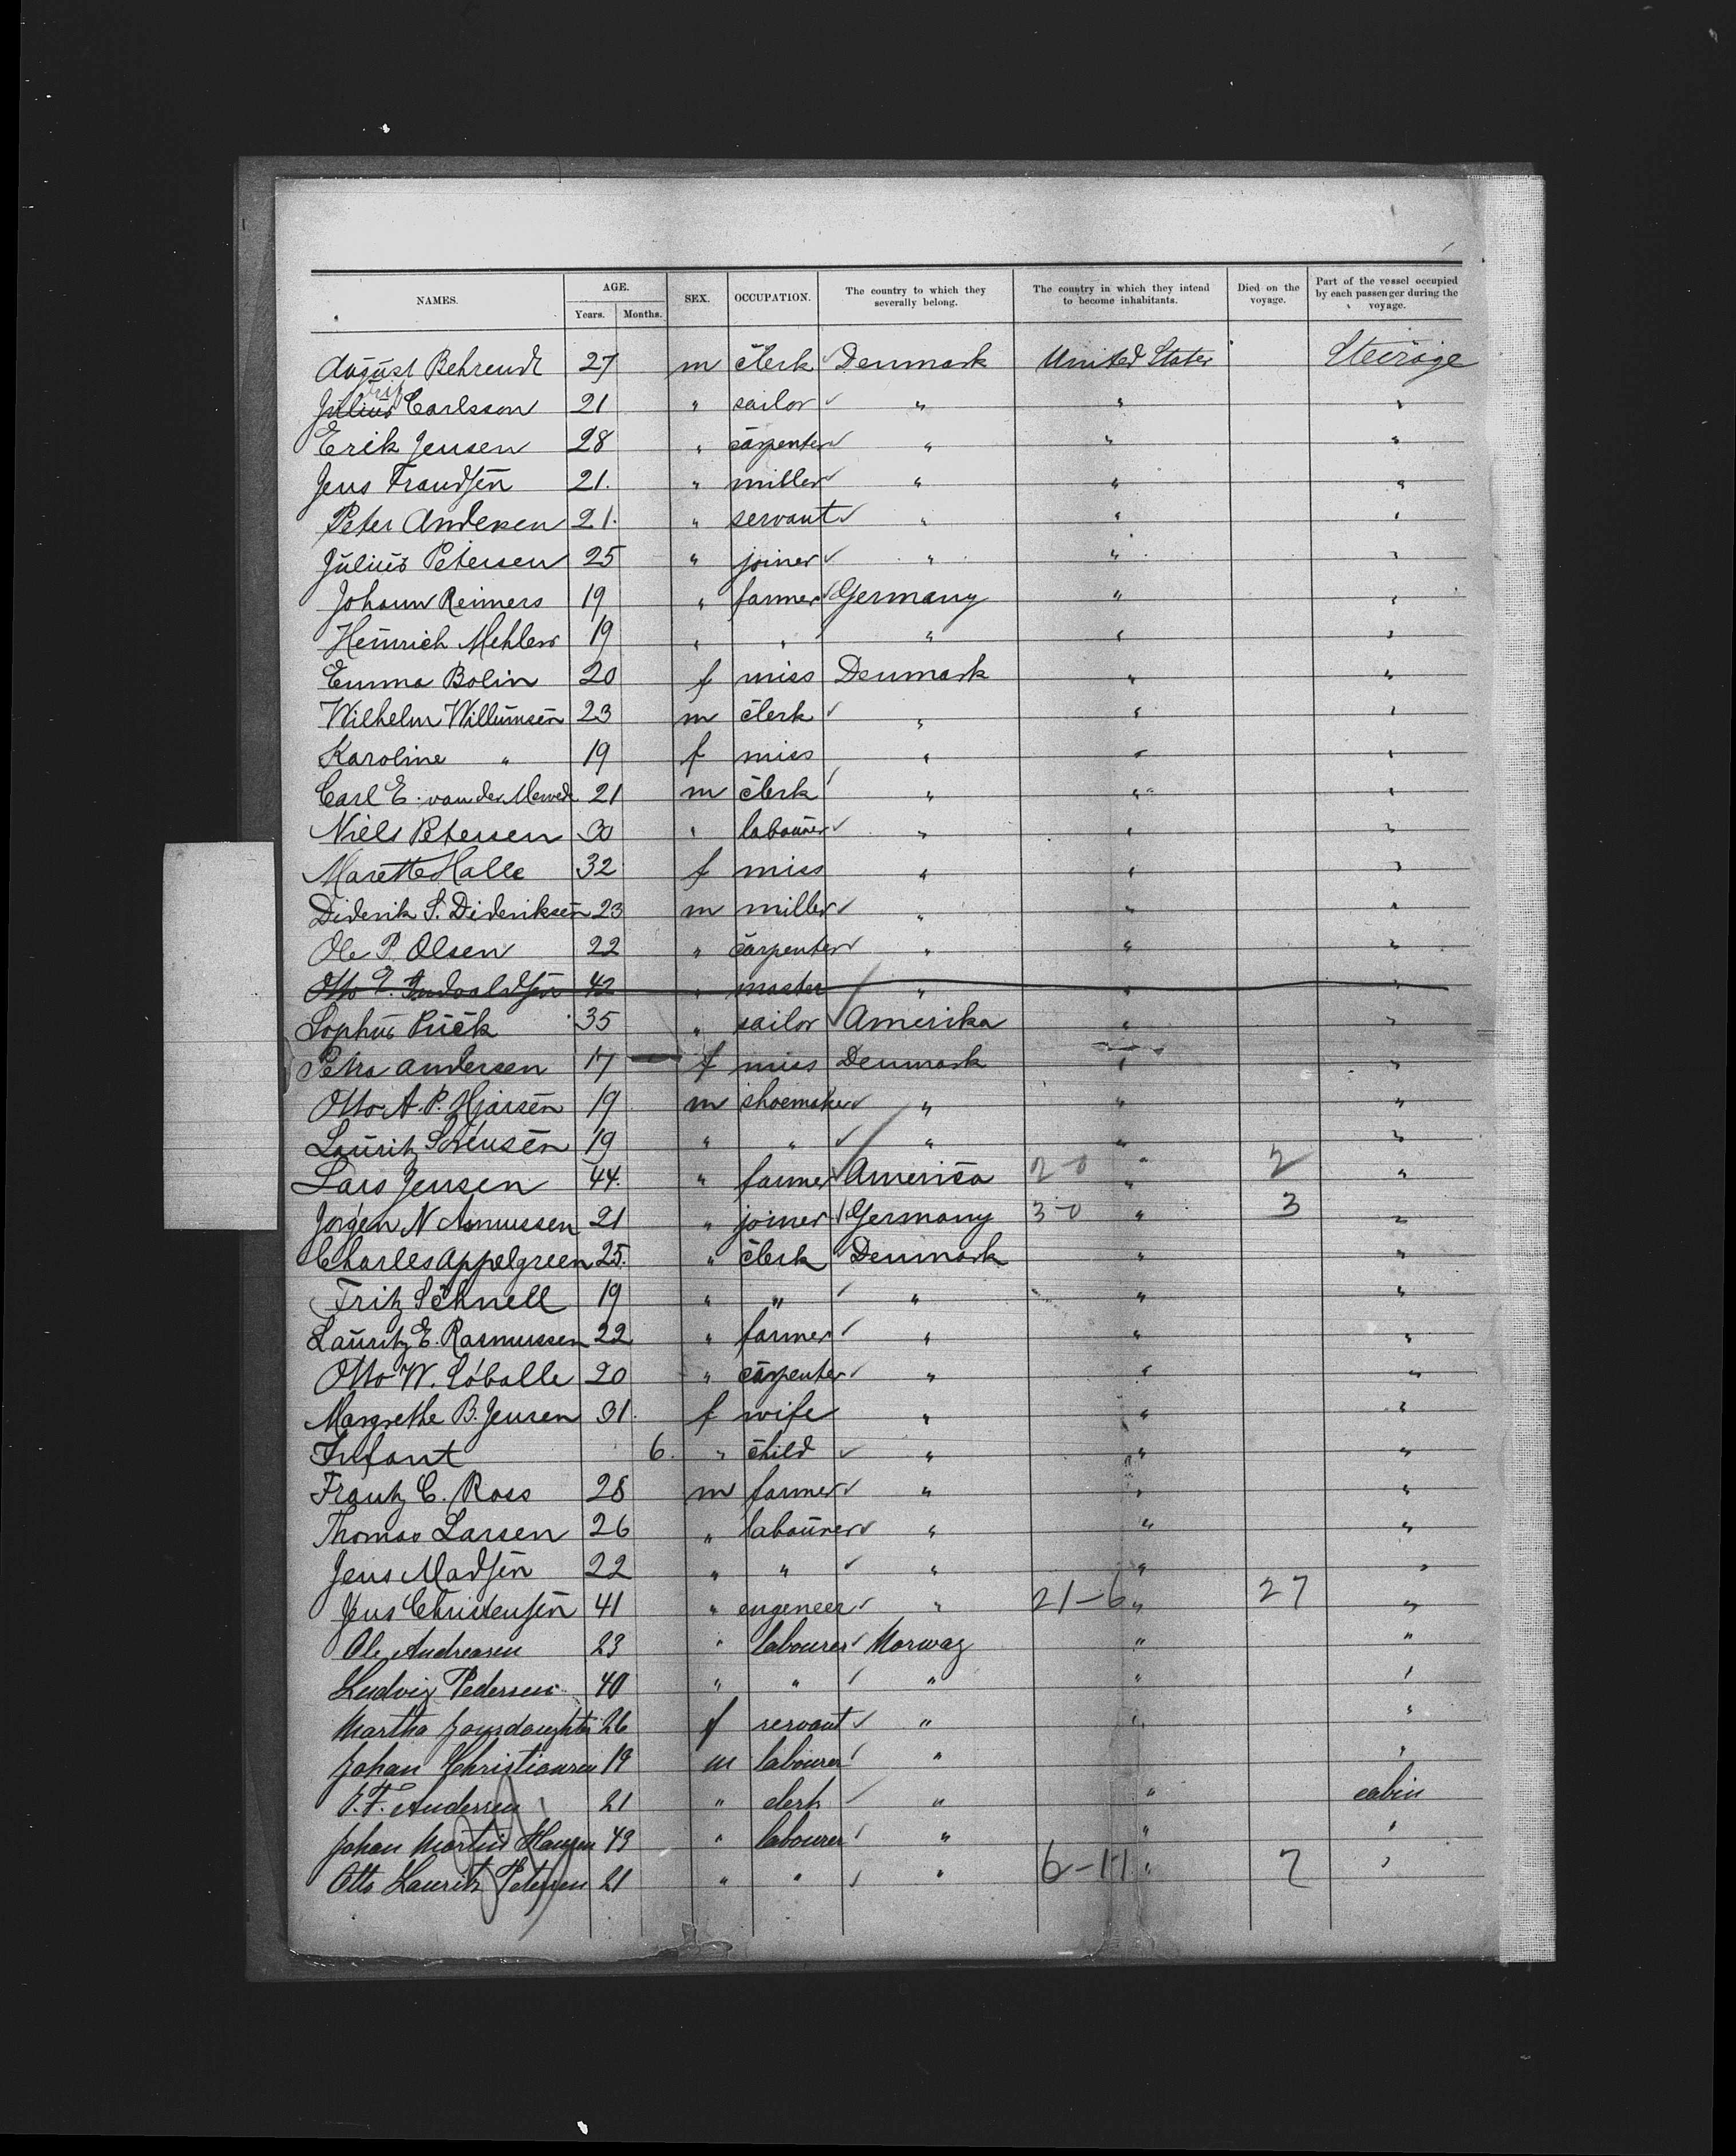 NAMES. AGE. Years. Months. SEX. OCCUPATION. The country to which they severally belong. The country in which they intend to become inhabitants. Died on the voyage. Part of the vessel occupied by each passenger during the voyage.
August Behrendt 27 m clerk Denmark United States Steirage
Julius Carlsson 21 " sailor " " "
Erik Jensen 28 " carpenter " " "
Jens Frandsen 21. " miller " " "
Peter Andersen 21. " servant " " "
Julius Petersen 25 " joiner " " "
Johann Reimers 19 " farmer Germany " "
Heinrich Mehlers 19 " " " " "
Emma Bolin 20 f miss Denmark " "
Wilhelm Willumsen 23 m clerk " " "
Karoline " 19 f miss " " "
Carl E. van der 21 m clerk " " "
Niels Petersen 30 " labourer " " "
Marette Halle 32 f miss " " "
Diderik S. Dideriksen 23 m miller " " "
Ole P. Olsen 22 " carpenter " " "
Otto E. 42 " master " " "
Sophus Puck 35 " sailor Amerika " "
Petra Andersen 17 f miss Denmark " "
Otto A. P. Hjarsen 19 m shoemaker " " "
Lauritz Sörensen 19 " " " " "
Lars Jensen 44. " farmer America 2-0 " 2 "
Jörgen N Asmussen 21 " joiner Germany 3-0 " 3 "
Charles Appelgreen 25. " clerk Denmark " "
Fritz Schnell 19 " " " " "
Lauritz E. Rasmussen 22 " farmer " " "
Otto W. Löballe 20 " carpenter " " "
Margrethe B. Jensen 31. f wife " " "
Infant 6. " child " " "
Frantz C. Ross 28 m farmer " " "
Thomas Larsen 26 " labourer " " "
Jens Madsen 22 " " " " "
Jens Christensen 41 " engeneer " 21-6 " 27 "
Ole Andreasen 23 " labourer Norway " "
Ludvig Pedersen 40 " " " " "
Martha 26 f servant " " "
Johan Christiansen 19 m labourer " "
F. Andersen 21 " clerk " " cabin
Johan Martin Hansen 49 " labourer " " "
Otto Lauritz Petersen 21 " " " 6-11 " 7 "